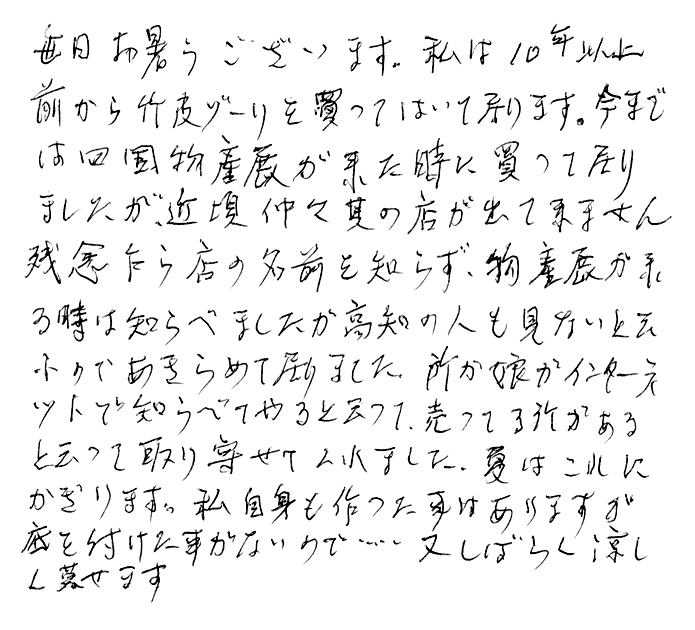 毎日お暑うございます。私は10年以上
前から竹皮ゾーリを買ってはいて居ります。今まで
は四国物産展が来た時に買って居り
ましたが、近頃仲々其の店が出て来ません
残念乍ら店の名前を知らず、物産展が来
る時は知らべましたが高知の人も見ないと云
ふのであきらめて居りました、所が娘がインターネ
ットで知らべてやると云って、売ってる所がある
と云って取り寄せて入れました、夏はこれに
かぎります。私自身も作った事はありますが
底を付けた事がないので…… 又しばらく涼し
く暮せます